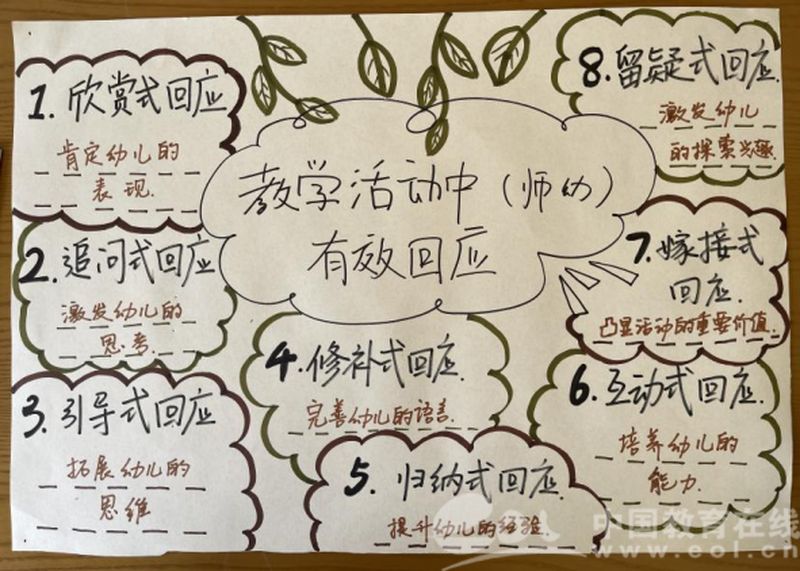 教学活动中（师幼）
有效回应
1. 欣赏式回应
肯定幼儿的
表现.
2. 追问式回应
激发幼儿的
思考.
3. 引导式回应
拓展幼儿的
思维
4. 修补式回应.
完善幼儿的语言.
5. 归纳式回应.
提升幼儿的经验.
6. 互动式回应.
培养幼儿的
能力.
7. 嫁接式
回应.
凸显活动的重要价值.
8. 留疑式回应.
激发幼儿
的探索兴趣.
中国教育在线
www.eol.cn